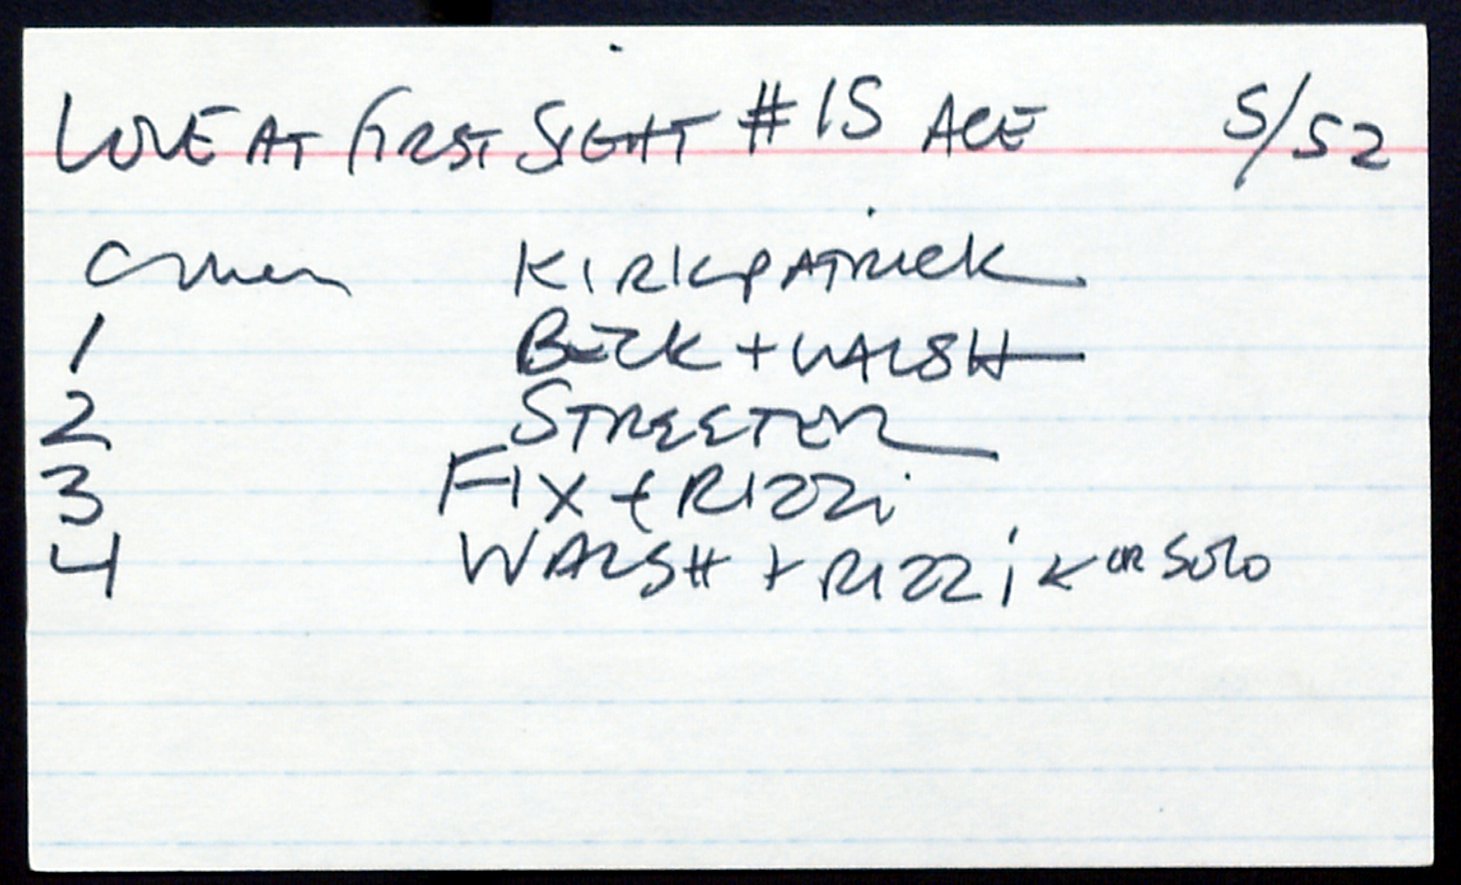 LOVE AT FIRST SIGHT #15 ACE 5/52
Cover KIRKPATRICK
1 BECK + WALSH
2 STREETER
3 FIX + RIZZi
4 WALSH + RIZZi ← OR SOLO